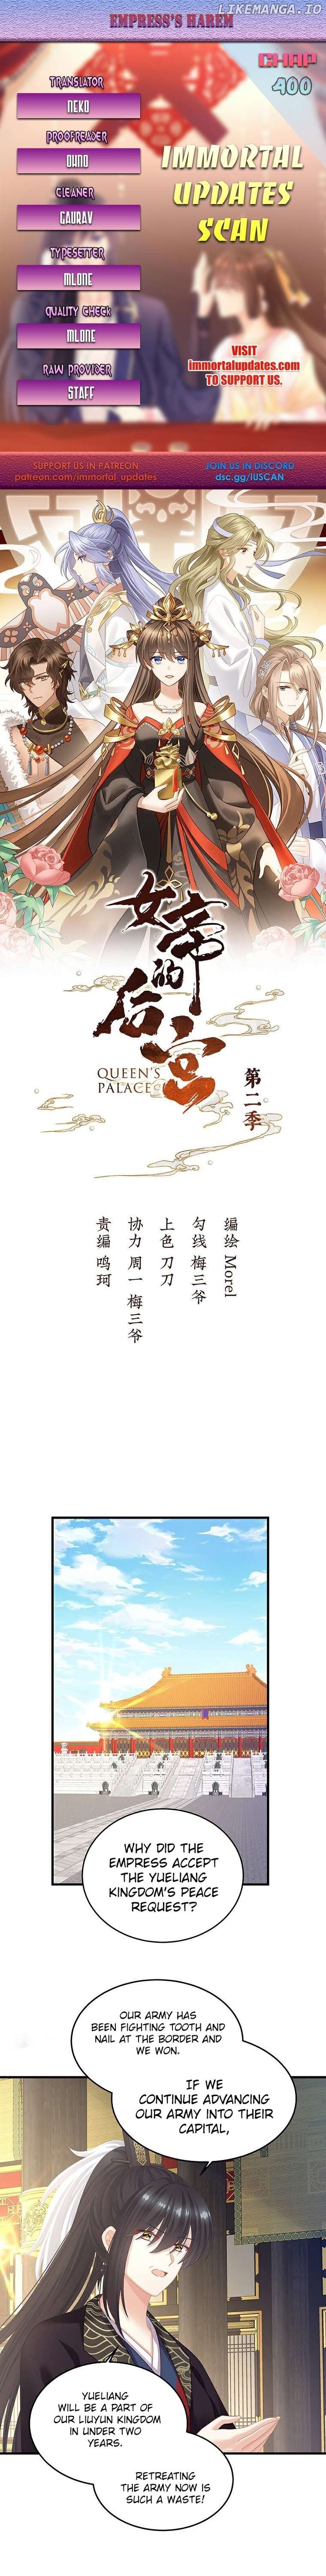 LIKEMANGA.IO
EMPRESS'S HAREM
CHAP
400
TRANSLATOR
NEKO
PROOFREADER
OHNO
CLEANER
GAURAV
TYPESETTER
MLONE
QUALITY CHECK
MLONE
RAW PROVIDER
STAFF
IMMORTAL
UPDATES
SCAN
VISIT
immortalupdates.com
TO SUPPORT US.
SUPPORT US IN PATREON
patreon.com/immortal_updates
JOIN US IN DISCORD
dsc.gg/IUSCAN
女帝的后宫
QUEEN'S
PALACE
第二季
编绘 Morel
勾线 梅三爷
上色 刀刀
协力 周一 梅三爷
责编 鸣珂
WHY DID THE
EMPRESS ACCEPT
THE YUELIANG
KINGDOM'S PEACE
REQUEST?
OUR ARMY HAS
BEEN FIGHTING TOOTH AND
NAIL AT THE BORDER AND
WE WON.
IF WE
CONTINUE ADVANCING
OUR ARMY INTO THEIR
CAPITAL,
YUELIANG
WILL BE A PART OF
OUR LIUYUN KINGDOM
IN UNDER TWO
YEARS.
RETREATING
THE ARMY NOW IS
SUCH A WASTE!